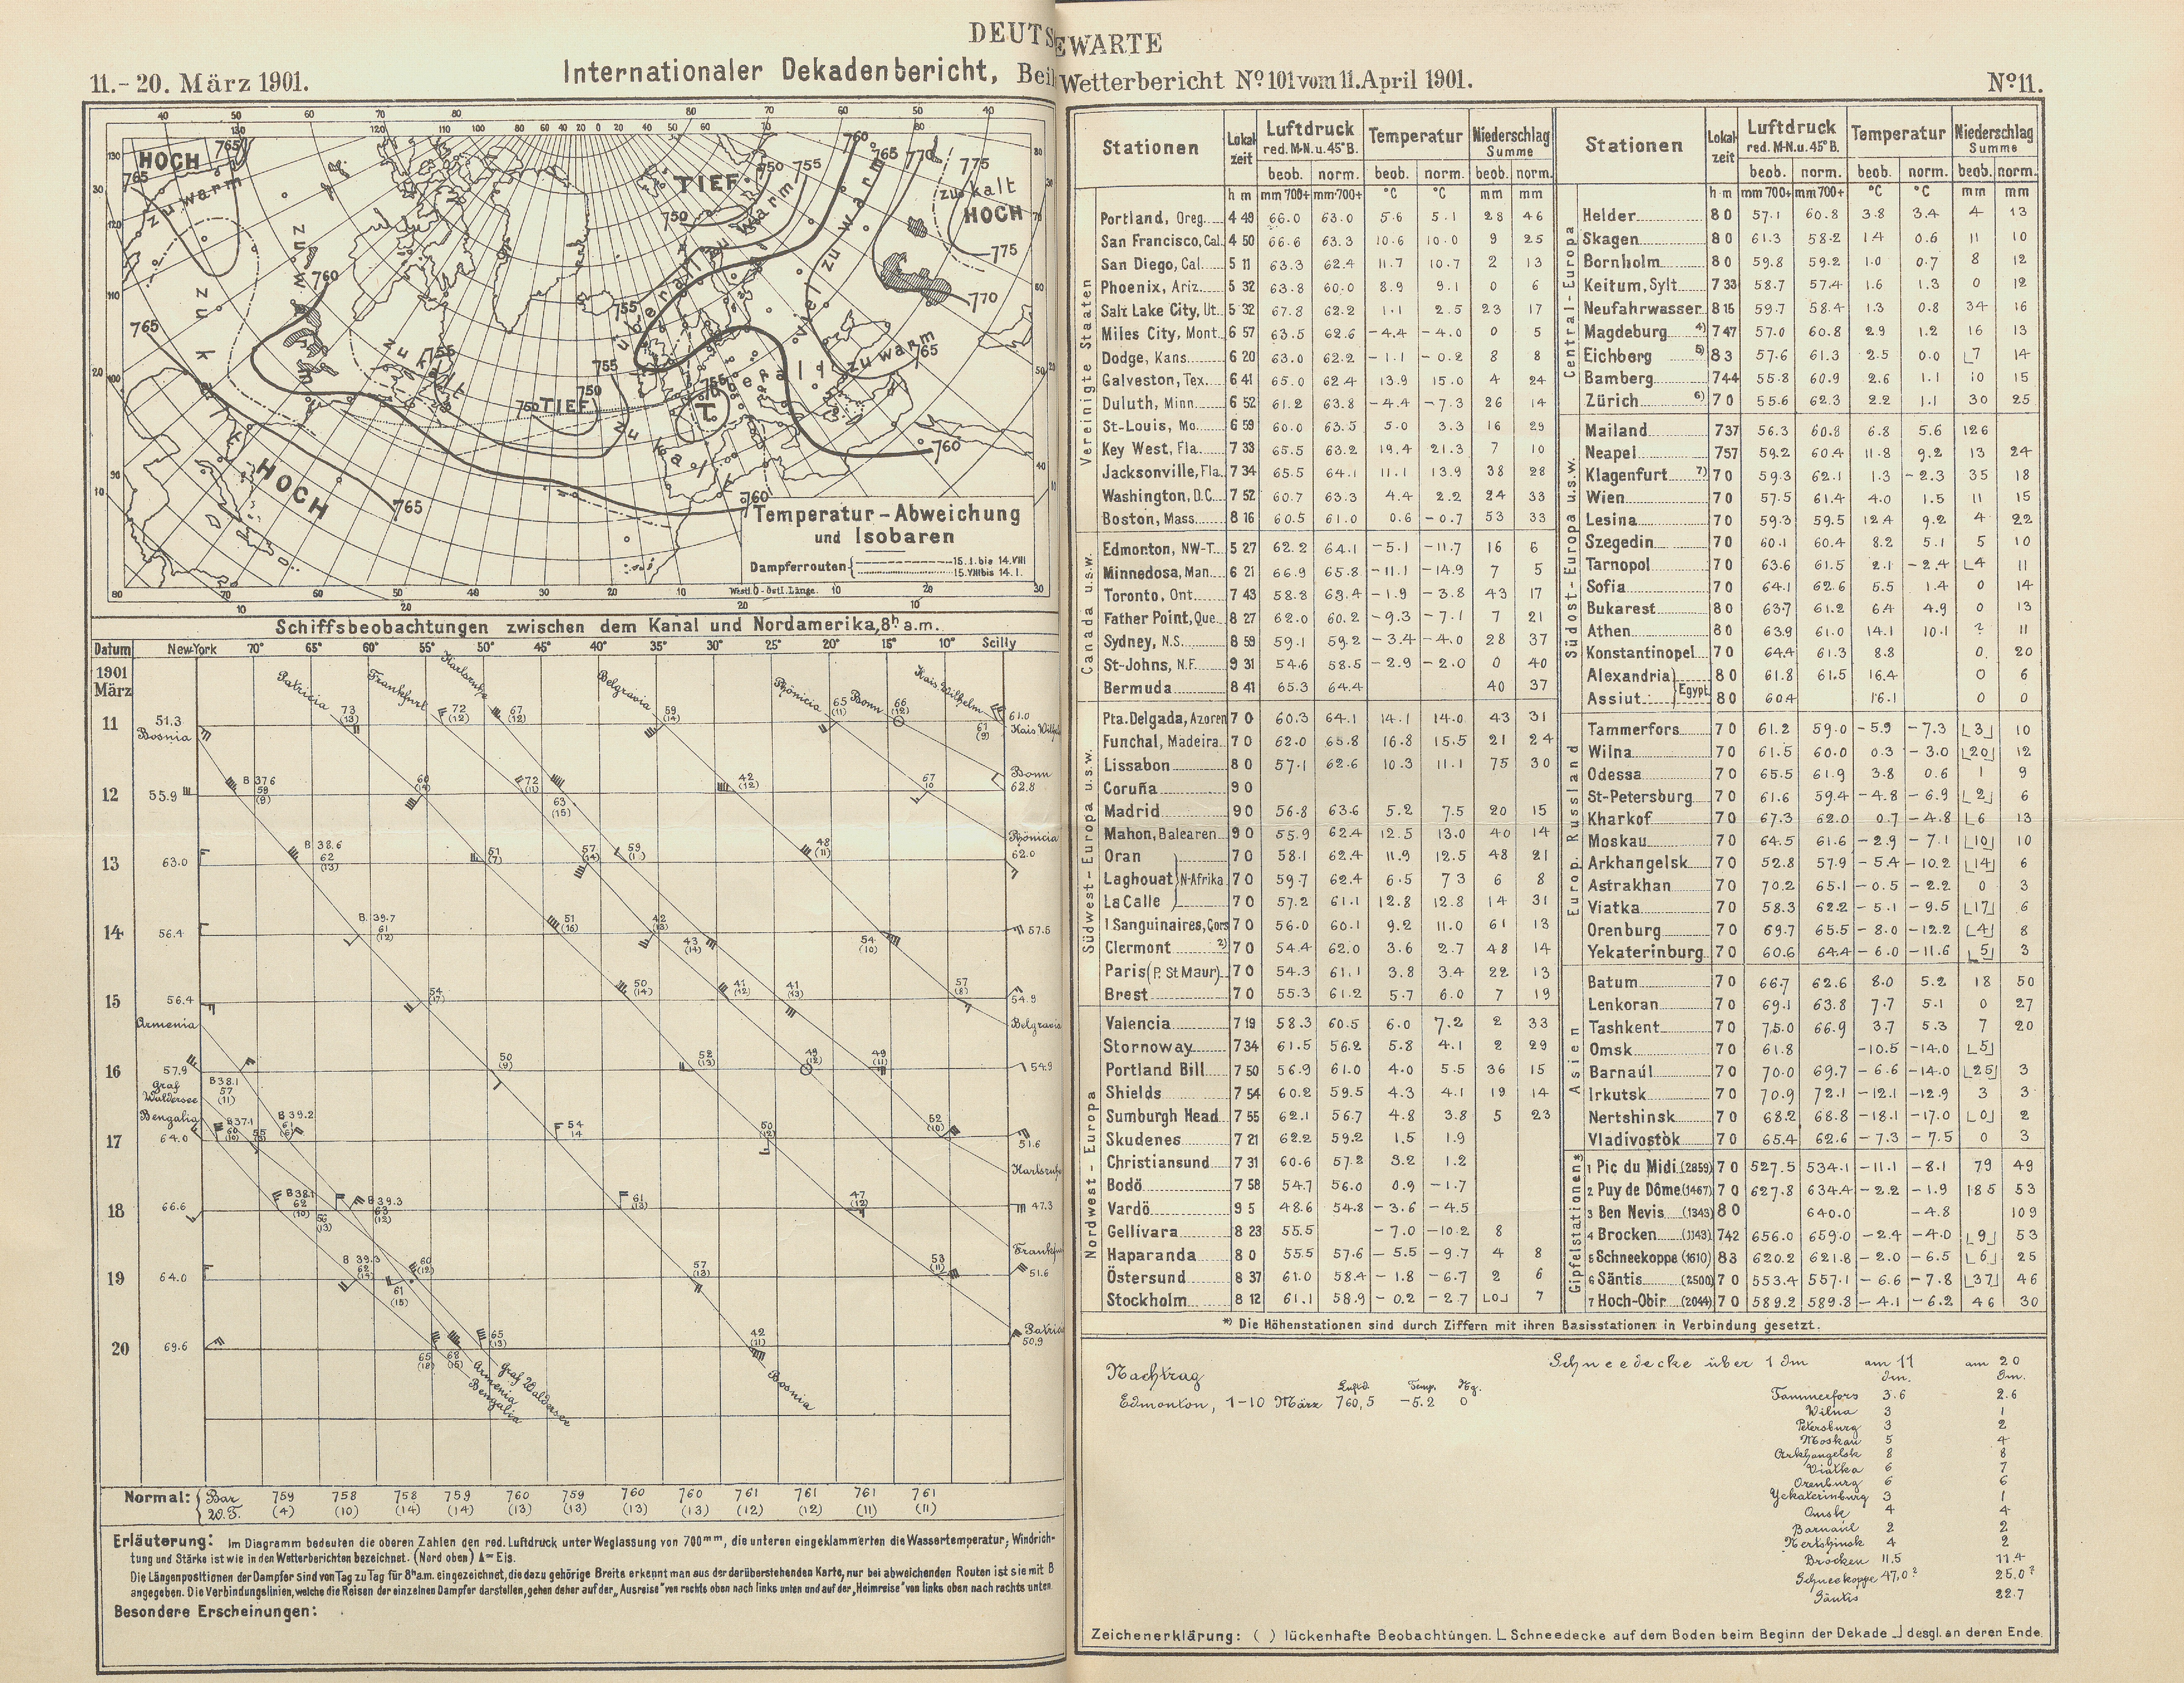 DEUTS EWARTE
11.-20. März 1901. Internationaler Dekadenbericht, Beil Wetterbericht No 101 vom 11. April 1901. No 11.
HOCH
zu warm
zu warm
zu kalt
TIEF
überall zu warm
viel zu warm
zu kalt
HOCH
zu warm
zu kalt
TIEF
T.
überall
zu kalt
HOCH
Temperatur-Abweichung
und Isobaren
Dampferrouten 15.I. bis 14.VIII
15.VIII bis 14.I.
Westl. 0 - östl. Länge.
Schiffsbeobachtungen zwischen dem Kanal und Nordamerika, 8h a.m.
Datum New-York 70° 65° 60° 55° 50° 45° 40° 35° 30° 25° 20° 15° 10° Scilly
1901
März
Patricia Frankfurt Karlsruhe Belgravia Phönicia Bonn Kais Wilhelm
11 51.3 73 (13) 72 (12) 67 (12) 59 (14) 65 (11) 66 (12) 61 (9) 61.0
Bosnia
Bonn
12 55.9 B 37.6 59 (9) 72 (11) 63 (15) 42 (12) 57 10 62.8
Phönicia
13 63.0 B 38.6 62 (13) 51 (7) 57 (14) 48 (11) 62.0
14 56.4 B. 39.7 61 (12) 51 (16) 42 (13) 43 (14) 54 (10) 57.5
15 56.4 54 (17) 50 (14) 41 (12) 41 (13) 57 (8) 54.9
Armenia Belgravia
16 57.9 50 (9) 52 (13) 49 (12) 49 (11) 54.9
Graf Waldersee B 38.1 57 (11)
Bengalia B 37.1 60 (10) B 39.2
17 64.0 54 14 50 (12) 52 (10) 51.6
Karlsruhe
18 66.6 B 38.1 62 (10) 56 (13) B 39.3 63 (12) 61 (13) 47 (12) 47.3
Frankfu
19 64.0 B 39.3 62 (14) 60 (12) 61 (15) 57 (13) 53 (11) 51.6
Patric
20 69.6 65 (18) 68 (15) 65 (13) 42 (11) 50.9
Armenia Bengalia Graf Waldersee Bosnia
Normal: Bar 759 758 758 759 760 759 760 760 761 761 761 761
W.T. (4) (10) (14) (14) (13) (13) (13) (13) (12) (12) (11) (11)
Erläuterung: Im Diagramm bedeuten die oberen Zahlen den red. Luftdruck unter Weglassung von 700mm, die unteren eingeklammerten die Wassertemperatur; Windrich-
tung und Stärke ist wie in den Wetterberichten bezeichnet. (Nord oben) = Eis.
Die Längenpositionen der Dampfer sind von Tag zu Tag für 8h a.m. eingezeichnet, die dazu gehörige Breite erkennt man aus der darüberstehenden Karte, nur bei abweichenden Routen ist sie mit B
angegeben. Die Verbindungslinien, welche die Reisen der einzelnen Dampfer darstellen, gehen daher auf der „Ausreise" von rechts oben nach links unten und auf der „Heimreise" von links oben nach rechts unten.
Besondere Erscheinungen:
Stationen Lokalzeit Luftdruck red. M-N. u. 45° B. Temperatur Niederschlag Summe
beob. norm. beob. norm. beob. norm.
h m mm 700+ mm 700+ °C °C mm mm
Vereinigte Staaten
Portland, Oreg. 4 49 66.0 63.0 5.6 5.1 28 46
San Francisco, Cal. 4 50 66.6 63.3 10.6 10.0 9 25
San Diego, Cal. 5 11 63.3 62.4 11.7 10.7 2 13
Phoenix, Ariz. 5 32 63.8 60.0 8.9 9.1 0 6
Salt Lake City, Ut. 5 32 67.8 62.2 1.1 2.5 23 17
Miles City, Mont. 6 57 63.5 62.6 -4.4 -4.0 0 5
Dodge, Kans. 6 20 63.0 62.2 -1.1 -0.2 8 8
Galveston, Tex. 6 41 65.0 62.4 13.9 15.0 4 24
Duluth, Minn. 6 52 61.2 63.8 -4.4 -7.3 26 14
St-Louis, Mo. 6 59 60.0 63.5 5.0 3.3 16 29
Key West, Fla. 7 33 65.5 63.2 19.4 21.3 7 10
Jacksonville, Fla. 7 34 65.5 64.1 11.1 13.9 38 28
Washington, D.C. 7 52 60.7 63.3 4.4 2.2 24 33
Boston, Mass. 8 16 60.5 61.0 0.6 -0.7 53 33
Canada u.s.w.
Edmonton, NW-T. 5 27 62.2 64.1 -5.1 -11.7 16 6
Minnedosa, Man. 6 21 66.9 65.8 -11.1 -14.9 7 5
Toronto, Ont. 7 43 58.8 63.4 -1.9 -3.8 43 17
Father Point, Que. 8 27 62.0 60.2 -9.3 -7.1 7 21
Sydney, N.S. 8 59 59.1 59.2 -3.4 -4.0 28 37
St-Johns, N.F. 9 31 54.6 58.5 -2.9 -2.0 0 40
Bermuda 8 41 65.3 64.4 40 37
Südwest-Europa u.s.w.
Pta. Delgada, Azoren 7 0 60.3 64.1 14.1 14.0 43 31
Funchal, Madeira 7 0 62.0 65.8 16.8 15.5 21 24
Lissabon 8 0 57.1 62.6 10.3 11.1 75 30
Coruña 9 0
Madrid 9 0 56.8 63.6 5.2 7.5 20 15
Mahon, Balearen 9 0 55.9 62.4 12.5 13.0 40 14
Oran 7 0 58.1 62.4 11.9 12.5 48 21
Laghouat N-Afrika 7 0 59.7 62.4 6.5 7.3 6 8
La Calle 7 0 57.2 61.1 12.8 12.8 14 31
I Sanguinaires, Cors 7 0 56.0 60.1 9.2 11.0 61 13
Clermont 2) 7 0 54.4 62.0 3.6 2.7 48 14
Paris (P. St Maur) 7 0 54.3 61.1 3.8 3.4 22 13
Brest 7 0 55.3 61.2 5.7 6.0 7 19
Nordwest-Europa
Valencia 7 19 58.3 60.5 6.0 7.2 2 33
Stornoway 7 34 61.5 56.2 5.8 4.1 2 29
Portland Bill 7 50 56.9 61.0 4.0 5.5 36 15
Shields 7 54 60.2 59.5 4.3 4.1 19 14
Sumburgh Head 7 55 62.1 56.7 4.8 3.8 5 23
Skudenes 7 21 62.2 59.2 1.5 1.9
Christiansund 7 31 60.6 57.2 3.2 1.2
Bodö 7 58 54.7 56.0 0.9 -1.7
Vardö 9 5 48.6 54.8 -3.6 -4.5
Gellivara 8 23 55.5 -7.0 -10.2 8
Haparanda 8 0 55.5 57.6 -5.5 -9.7 4 8
Östersund 8 37 61.0 58.4 -1.8 -6.7 2 6
Stockholm 8 12 61.1 58.9 -0.2 -2.7 ⌊0⌋ 7
Stationen Lokalzeit Luftdruck red. M-N. u. 45° B. Temperatur Niederschlag Summe
beob. norm. beob. norm. beob. norm.
h m mm 700+ mm 700+ °C °C mm mm
Central-Europa
Helder 8 0 57.1 60.8 3.8 3.4 4 13
Skagen 8 0 61.3 58.2 1.4 0.6 11 10
Bornholm 8 0 59.8 59.2 1.0 0.7 8 12
Keitum, Sylt 7 33 58.7 57.4 1.6 1.3 0 12
Neufahrwasser 8 15 59.7 58.4 1.3 0.8 34 16
Magdeburg 4) 7 47 57.0 60.8 2.9 1.2 16 13
Eichberg 5) 8 3 57.6 61.3 2.5 0.0 ⌊7 14
Bamberg 7 44 55.8 60.9 2.6 1.1 10 15
Zürich 6) 7 0 55.6 62.3 2.2 1.1 30 25
Südost-Europa u.s.w.
Mailand 7 37 56.3 60.8 6.8 5.6 126
Neapel 7 57 59.2 60.4 11.8 9.2 13 24
Klagenfurt 7) 7 0 59.3 62.1 1.3 -2.3 35 18
Wien 7 0 57.5 61.4 4.0 1.5 11 15
Lesina 7 0 59.3 59.5 12.4 9.2 4 22
Szegedin 7 0 60.1 60.4 8.2 5.1 5 10
Tarnopol 7 0 63.6 61.5 2.1 -2.4 ⌊4 11
Sofia 7 0 64.1 62.6 5.5 1.4 0 14
Bukarest 8 0 63.7 61.2 6.4 4.9 0 13
Athen 8 0 63.9 61.0 14.1 10.1 ? 11
Konstantinopel 7 0 64.4 61.3 8.8 0. 20
Alexandria 8 0 61.8 61.5 16.4 0 6
Assiut Egypt 8 0 60.4 16.1 0 0
Europ. Russland
Tammerfors 7 0 61.2 59.0 -5.9 -7.3 ⌊3⌋ 10
Wilna 7 0 61.5 60.0 0.3 -3.0 ⌊20⌋ 12
Odessa 7 0 65.5 61.9 3.8 0.6 1 9
St-Petersburg 7 0 61.6 59.4 -4.8 -6.9 ⌊2⌋ 6
Kharkof 7 0 67.3 62.0 0.7 -4.8 ⌊6 13
Moskau 7 0 64.5 61.6 -2.9 -7.1 ⌊10⌋ 10
Arkhangelsk 7 0 52.8 57.9 -5.4 -10.2 ⌊14⌋ 6
Astrakhan 7 0 70.2 65.1 -0.5 -2.2 0 3
Viatka 7 0 58.3 62.2 -5.1 -9.5 ⌊17⌋ 6
Orenburg 7 0 69.7 65.5 -8.0 -12.2 ⌊4⌋ 8
Yekaterinburg 7 0 60.6 64.4 -6.0 -11.6 ⌊5⌋ 3
Asien
Batum 7 0 66.7 62.6 8.0 5.2 18 50
Lenkoran 7 0 69.1 63.8 7.7 5.1 0 27
Tashkent 7 0 75.0 66.9 3.7 5.3 7 20
Omsk 7 0 61.8 -10.5 -14.0 ⌊5⌋
Barnaúl 7 0 70.0 69.7 -6.6 -14.0 ⌊25⌋ 3
Irkutsk 7 0 70.9 72.1 -12.1 -12.9 3 3
Nertshinsk 7 0 68.2 68.8 -18.1 -17.0 ⌊0⌋ 2
Vladivostòk 7 0 65.4 62.6 -7.3 -7.5 0 3
Gipfelstationen*
1 Pic du Midi (2859) 7 0 527.5 534.1 -11.1 -8.1 79 49
2 Puy de Dôme (1467) 7 0 627.8 634.4 -2.2 -1.9 185 53
3 Ben Nevis (1343) 8 0 640.0 -4.8 109
4 Brocken (1143) 7 42 656.0 659.0 -2.4 -4.0 ⌊9⌋ 53
5 Schneekoppe (1610) 8 3 620.2 621.8 -2.0 -6.5 ⌊6⌋ 25
6 Säntis (2500) 7 0 553.4 557.1 -6.6 -7.8 ⌊37⌋ 46
7 Hoch-Obir (2044) 7 0 589.2 589.8 -4.1 -6.2 46 30
*) Die Höhenstationen sind durch Ziffern mit ihren Basisstationen in Verbindung gesetzt.
Nachtrag
Luftd. Temp. Ng.
Edmonton, 1-10 März 760,5 -5.2 0
Schneedecke über 1 dm am 11 am 20
dm. dm.
Tammerfors 3.6 2.6
Wilna 3 1
Petersburg 3 2
Moskau 5 4
Arkhangelsk 8 8
Viatka 6 7
Orenburg 6 6
Yekaterinburg 3 1
Omsk 4 4
Barnaúl 2 2
Nertshinsk 4 2
Brocken 11,5 11.4
Schneekoppe 47,0? 25.0?
Säntis 22.7
Zeichenerklärung: ( ) lückenhafte Beobachtungen. ⌊ Schneedecke auf dem Boden beim Beginn der Dekade ⌋ desgl. an deren Ende.